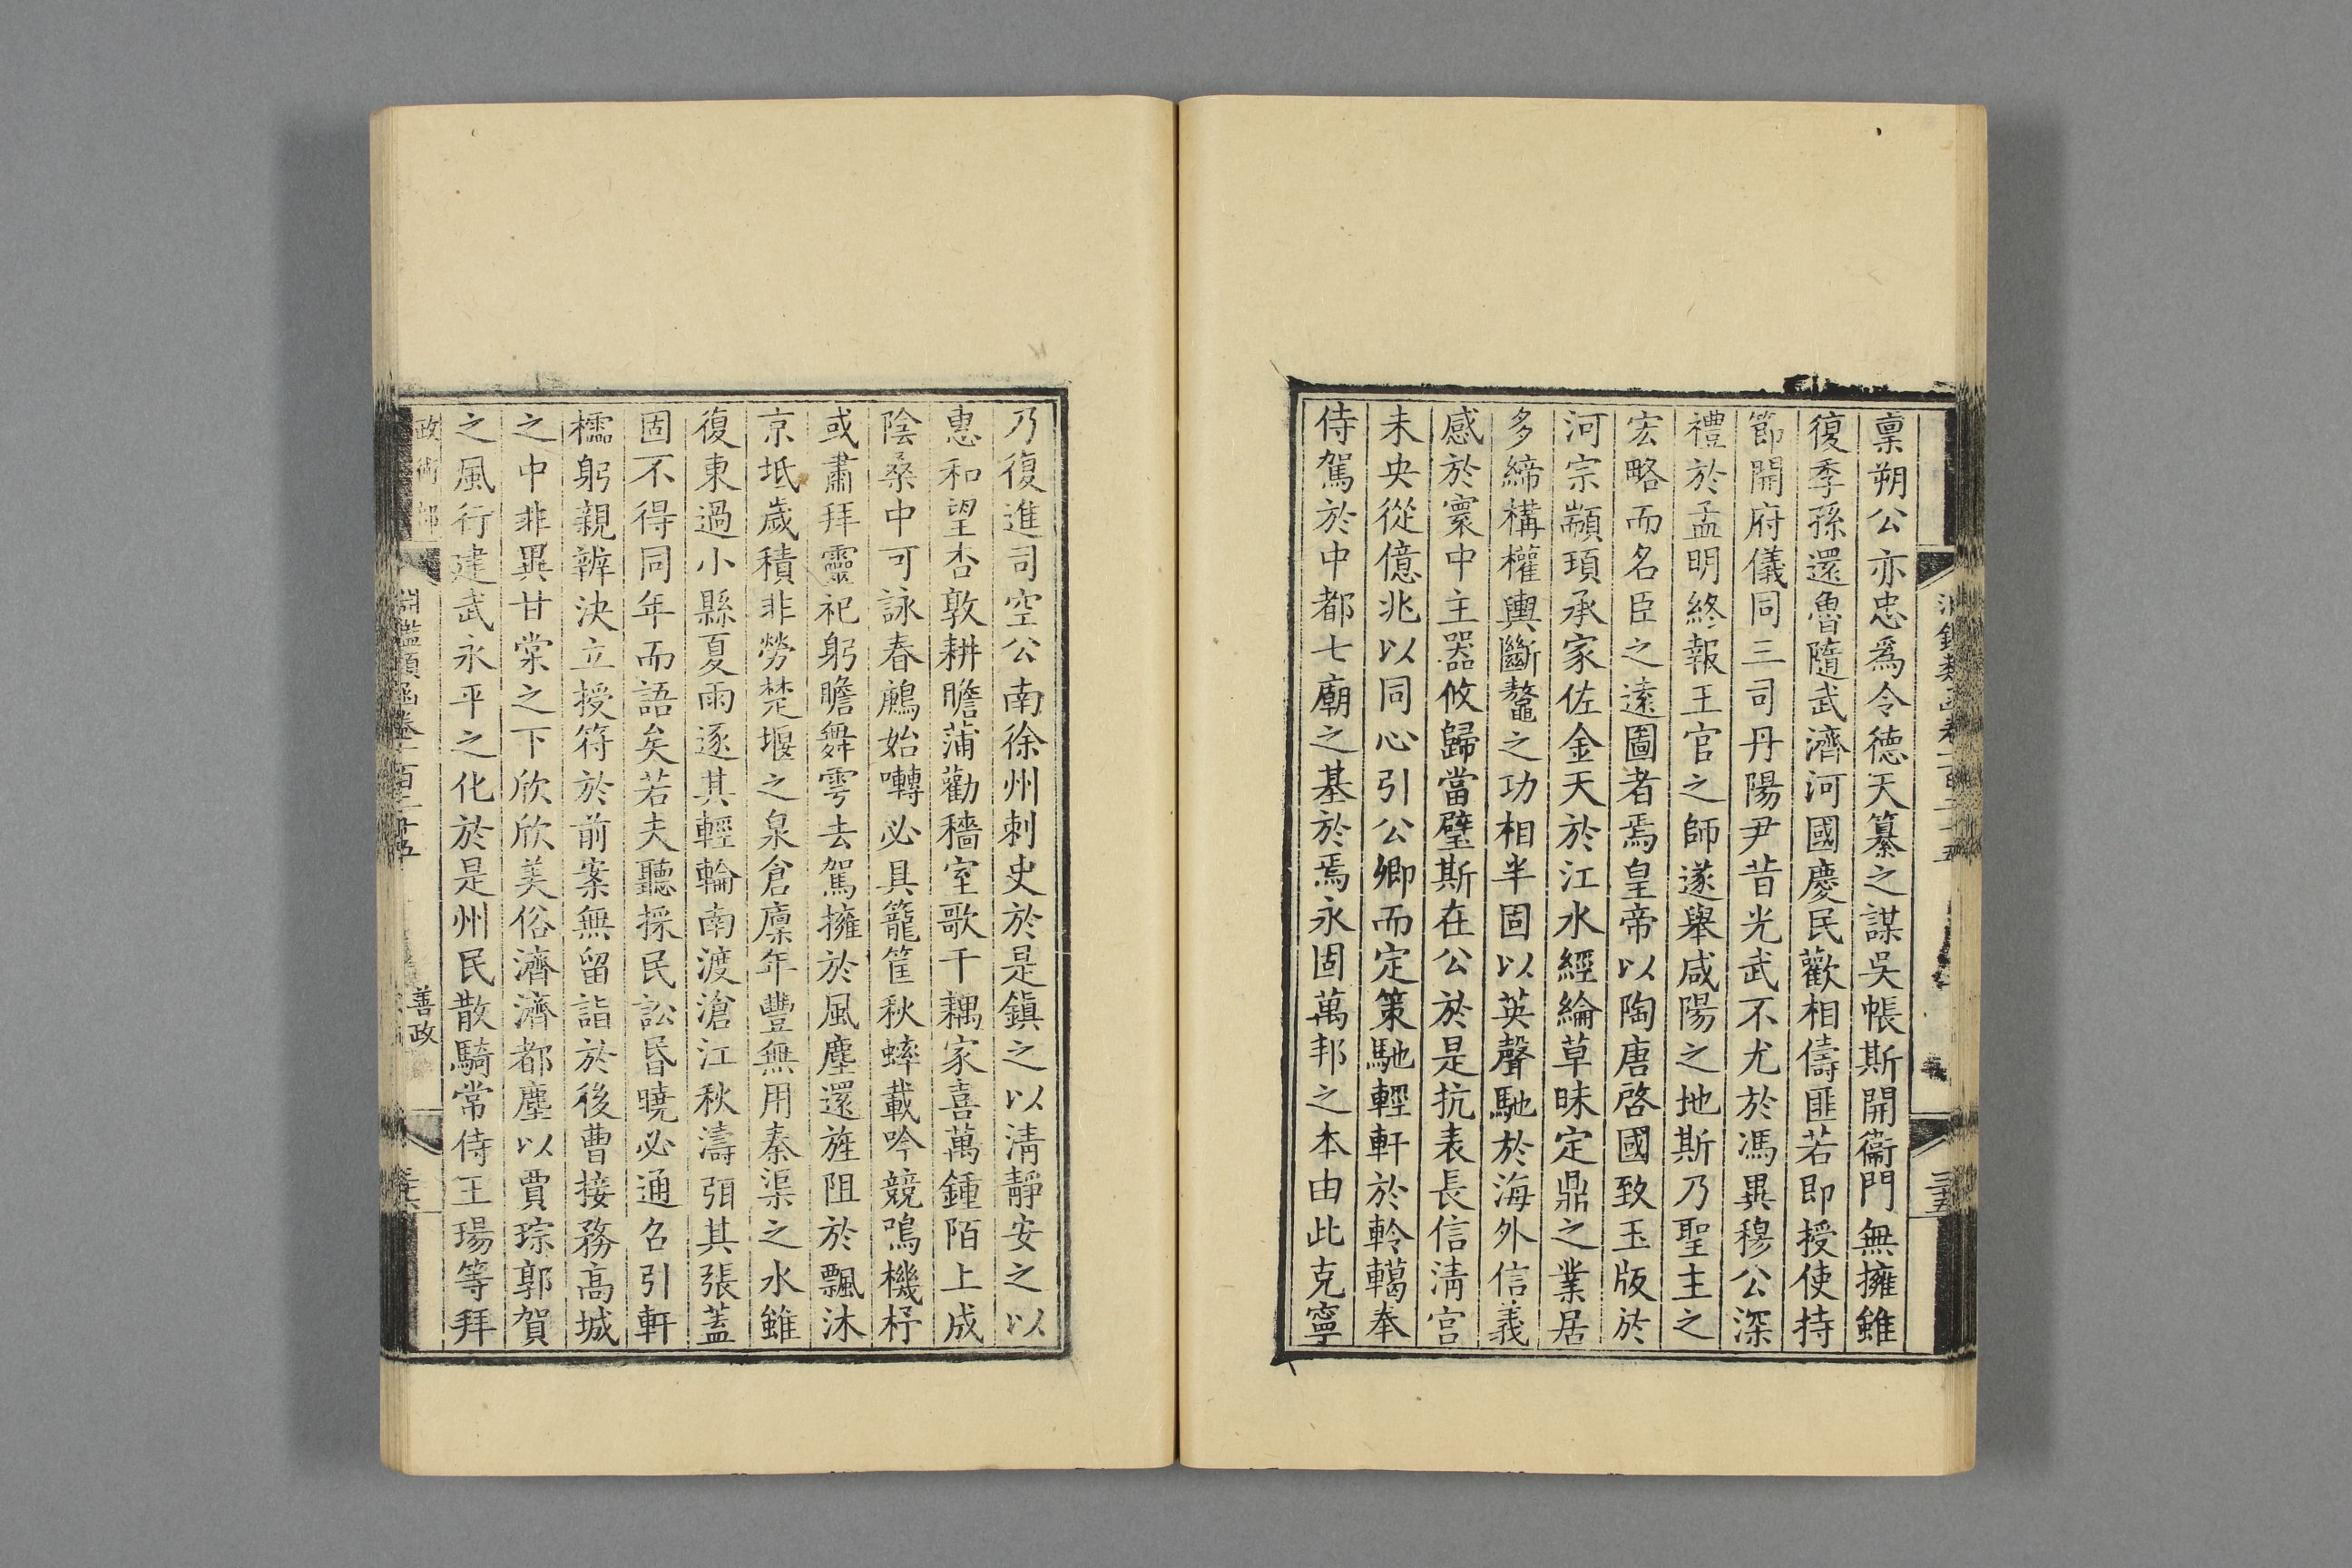 稟朔公亦忠爲令德天纂之謀吳帳斯開衞門無擁雖
復季孫還魯隨武濟河國慶民歡相儔匪若即授使持
節開府儀同三司丹陽尹昔光武不尤於馮異穆公深
禮於孟明終報王官之師遂舉咸陽之地斯乃聖主之
宏略而名臣之遠圖者焉皇帝以陶唐啓國致玉版於
河宗顓頊承家佐金天於江水經綸草昧定鼎之業居
多締構權輿斷鼇之功相半固以英聲馳於海外信義
感於寰中主器攸歸當璧斯在公於是抗表長信淸宫
未央從億兆以同心引公卿而定策馳輕軒於軨轕奉
侍駕於中都七廟之基於焉永固萬邦之本由此克寧
乃復進司空公南徐州刺史於是鎭之以淸靜安之以
惠和望杏敦耕瞻蒲勸穡室歌千耦家喜萬鍾陌上成
陰桑中可詠春鳸始囀必具籠筐秋蟀載吟競鳴機杼
或肅拜靈祀躬瞻舞雩去駕擁於風塵還旌阻於飄沐
京坻歲積非勞楚堰之泉倉廩年豐無用秦渠之水雖
復東過小縣夏雨逐其輕輪南渡滄江秋濤弭其張蓋
固不得同年而語矣若夫聽採民訟昏曉必通召引軒
櫺躬親辨決立授符於前案無留詣於後曹接務高城
之中非異甘棠之下欣欣美俗濟濟都塵以賈琮郭賀
之風行建武永平之化於是州民散騎常侍王瑒等拜
政術部
淵鑑類函卷一百二十五
善政